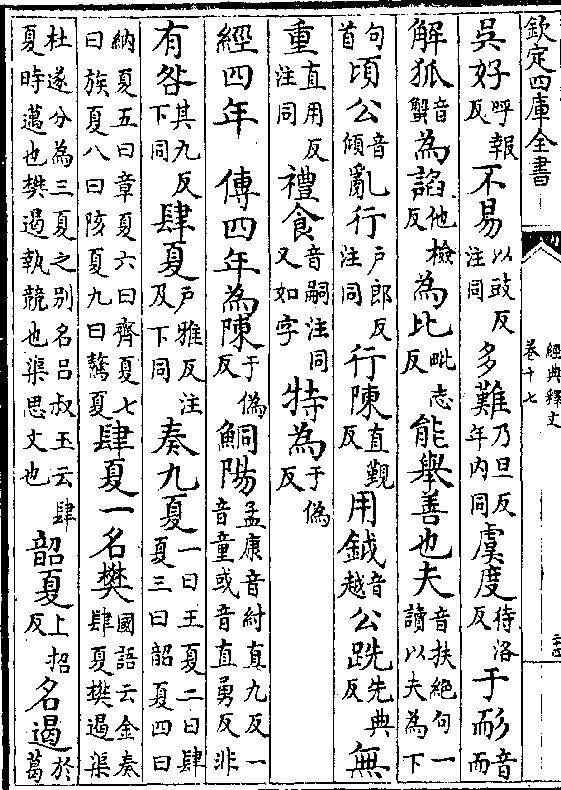 欽定四庫全書
經典釋文
卷十七
二十四
吳好呼報反不易以豉反注同多難乃旦反年内同虞度待洛反于耏音而
解狐音蟹為諂他檢反為比毗志反能舉善也夫音扶絶句一讀以夫為下
句首頃公音傾亂行户郎反注同行陳直覲反用鉞音越公跣先典反無
重直用反注同禮食音嗣注同又如字特為于偽反
經四年　傳四年為陳于偽反鮦陽孟康音紂直九反一音童或音直勇反非
有咎其九反下同肆夏户雅反注及下同奏九夏一曰王夏二曰肆夏三曰韶夏四曰
納夏五曰章夏六曰齊夏七曰族夏八曰陔夏九曰驁夏肆夏一名樊國語云金奏肆夏樊遏渠
杜遂分為三夏之别名吕叔玉云肆夏時邁也樊遏執競也渠思文也韶夏上招反名遏於葛